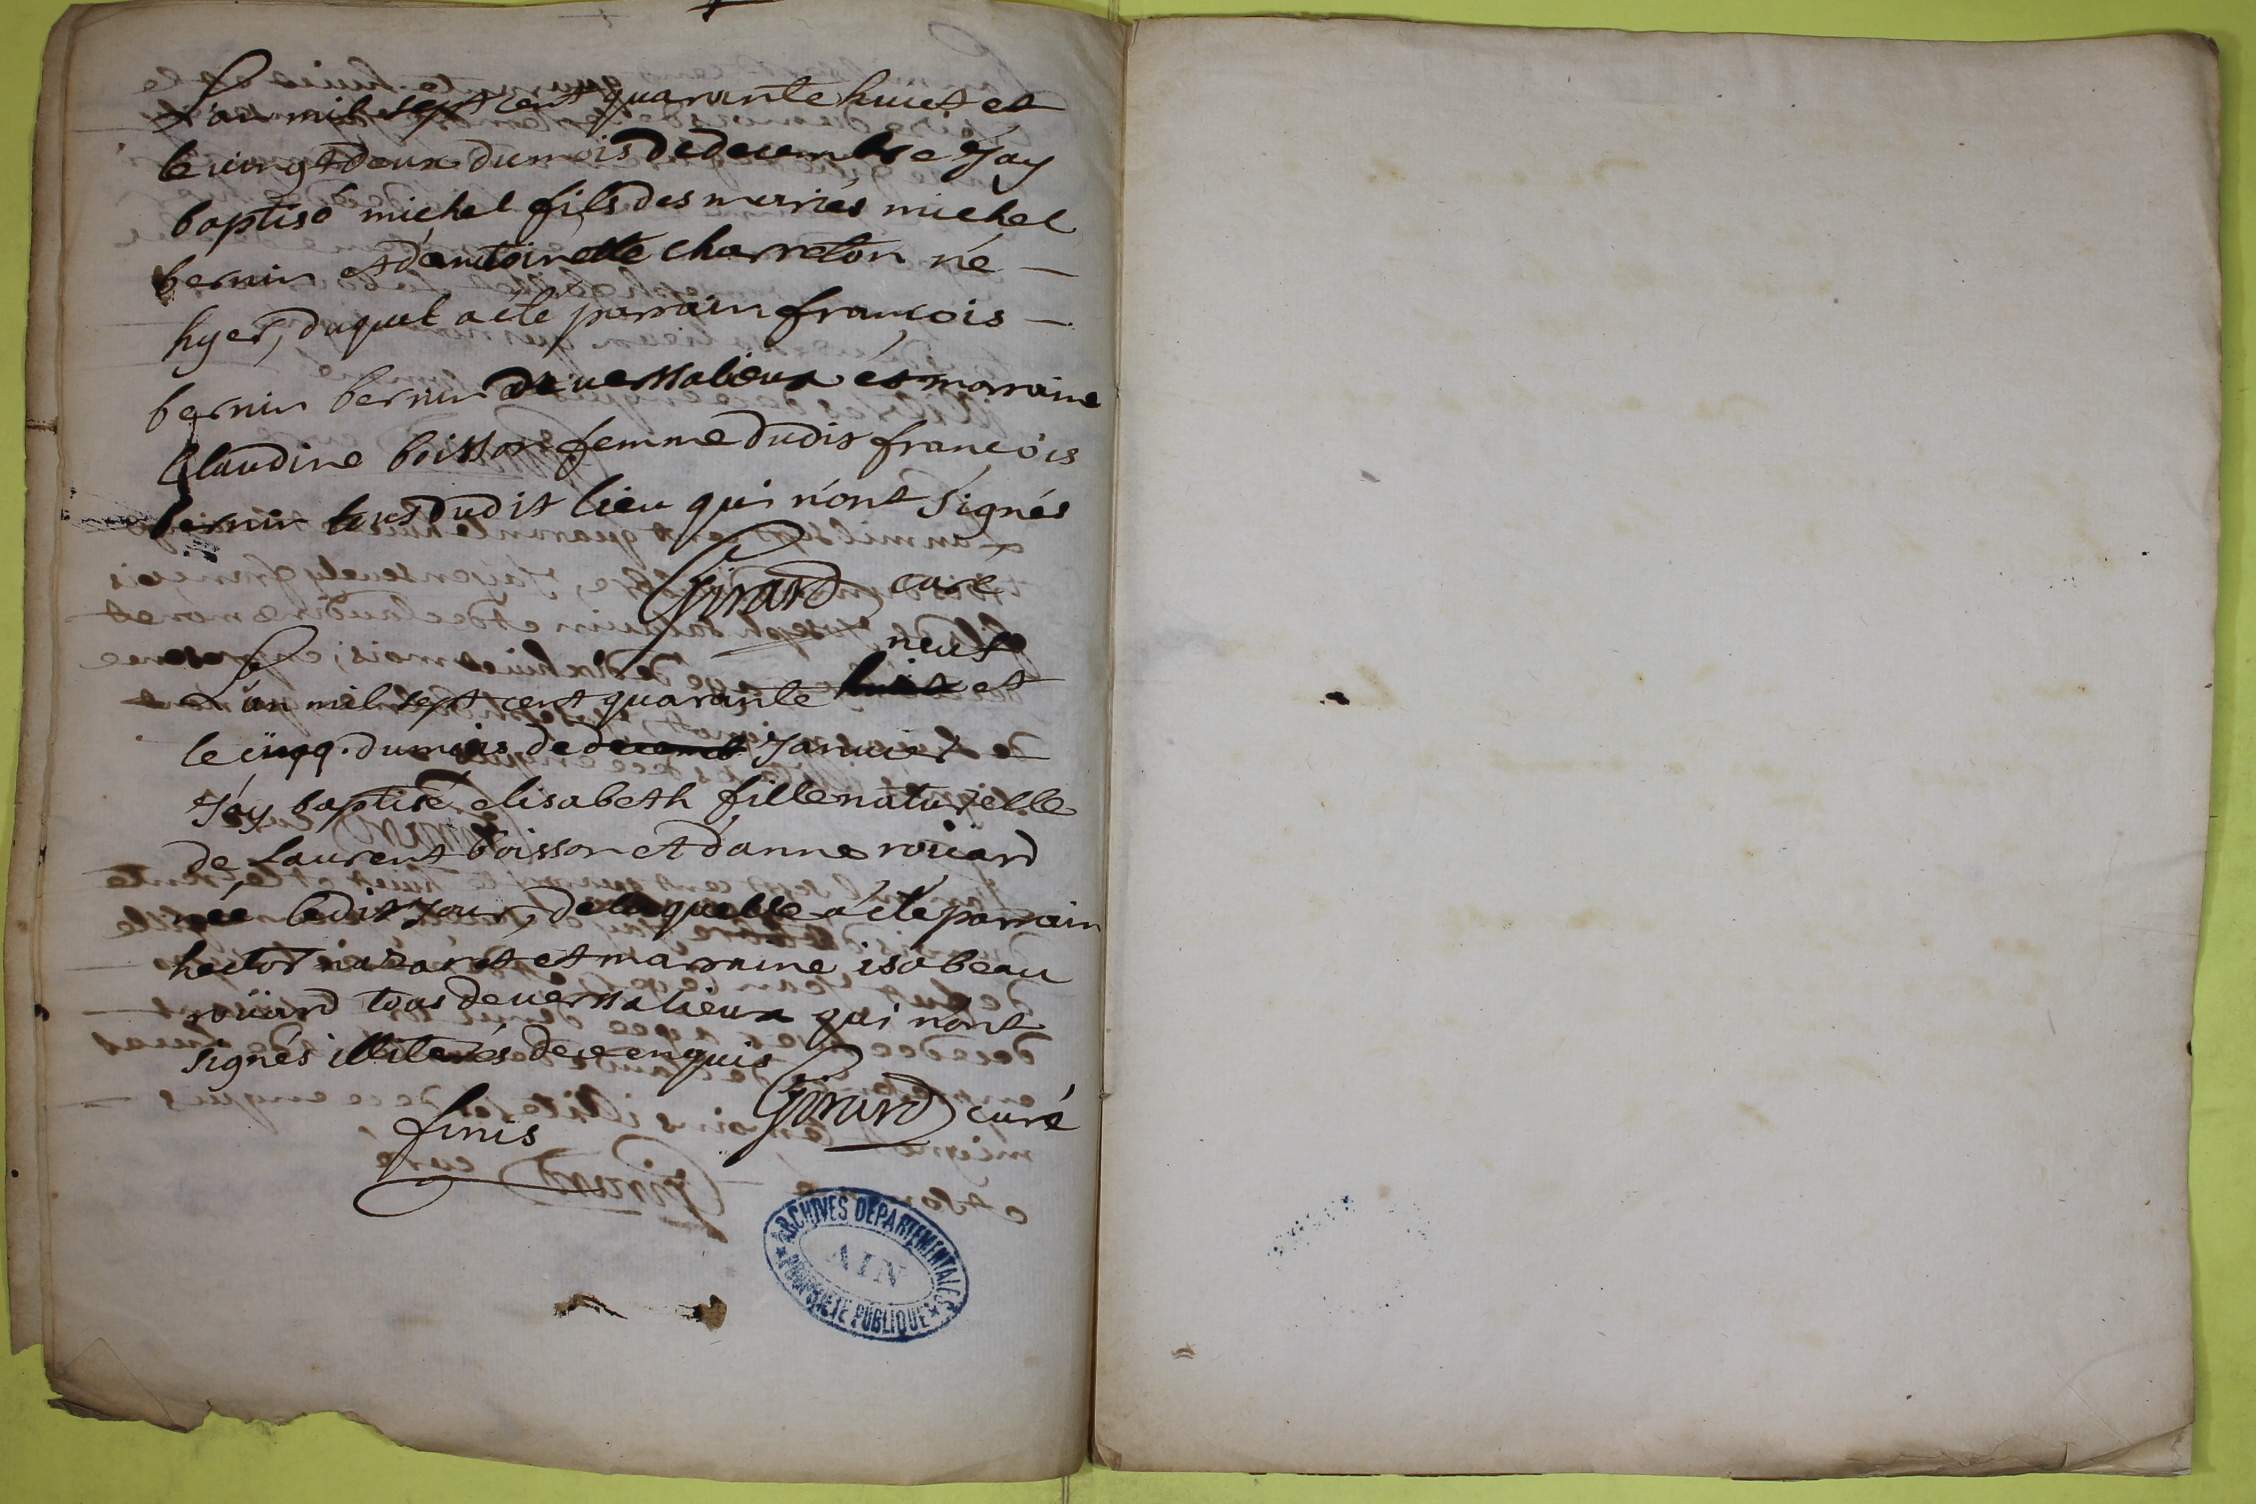 L'an mil sept cent quarante huict et
le vingt deux du mois de decembre J'ay
baptisé michel fils des mariés michel
bernin et d'antoinette charreton né —
hyer, duquel a été parrain françois —
bernin bernin de versalieux et marraine
Claudine boisson femme dudit françois
bernin tous dudit lieu qui n'ont signés
Girard curé
neuf
L'an mil sept cent quarante huict et
le cinq. du mois de decemb Janvier
J'ay baptisé elisabeth fille naturelle
de Laurent boisson et d'anne roüard
née ledit Jour, de laquelle a été parrain
hector nazaret et marraine isabeau
roüard tous de versalieux qui n'ont
signés illiterés de ce enquis
Girard curé
finis
ARCHIVES DEPARTEMENTALES
AIN
PROPRIETE PUBLIQUE